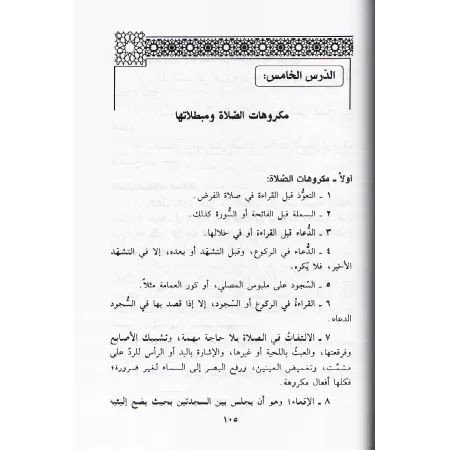 الدّرس الخامس:
مكروهات الصّلاة ومبطلاتها
أولاً ـ مكروهات الصّلاة:
١ ـ التعوّذ قبل القراءة في صلاة الفرض.
٢ ـ البسملة قبل الفاتحة أو السُّورة كذلك.
٣ ـ الدُّعاء قبل القراءة أو في خلالها.
٤ ـ الدُّعاء في الركوع، وقبل التشهّد أو بعده، إلا في التشهّد
الأخير، فلا يُكره.
٥ ـ السّجود على ملبوس المصلي، أو كور العمامة مثلاً.
٦ ـ القراءةُ في الركوع أو السّجود، إلا إذا قصد بها في السُّجود
الدعاء.
٧ ـ الالتفاتُ في الصلاة بلا حاجة مهمة، وتشبيك الأصابع
وفرقعتها، والعبثُ باللحية أو غيرها، والإشارة باليد أو الرأس للردّ على
مشمِّت، وتغميض العينين، ورفع البصر إلى السماء لغير ضرورة؛
فكلها أفعال مكروهة.
٨ ـ الإقعاء؛ وهو أن يجلس بين السجدتين بحيث يضع إليتيه
١٠٥